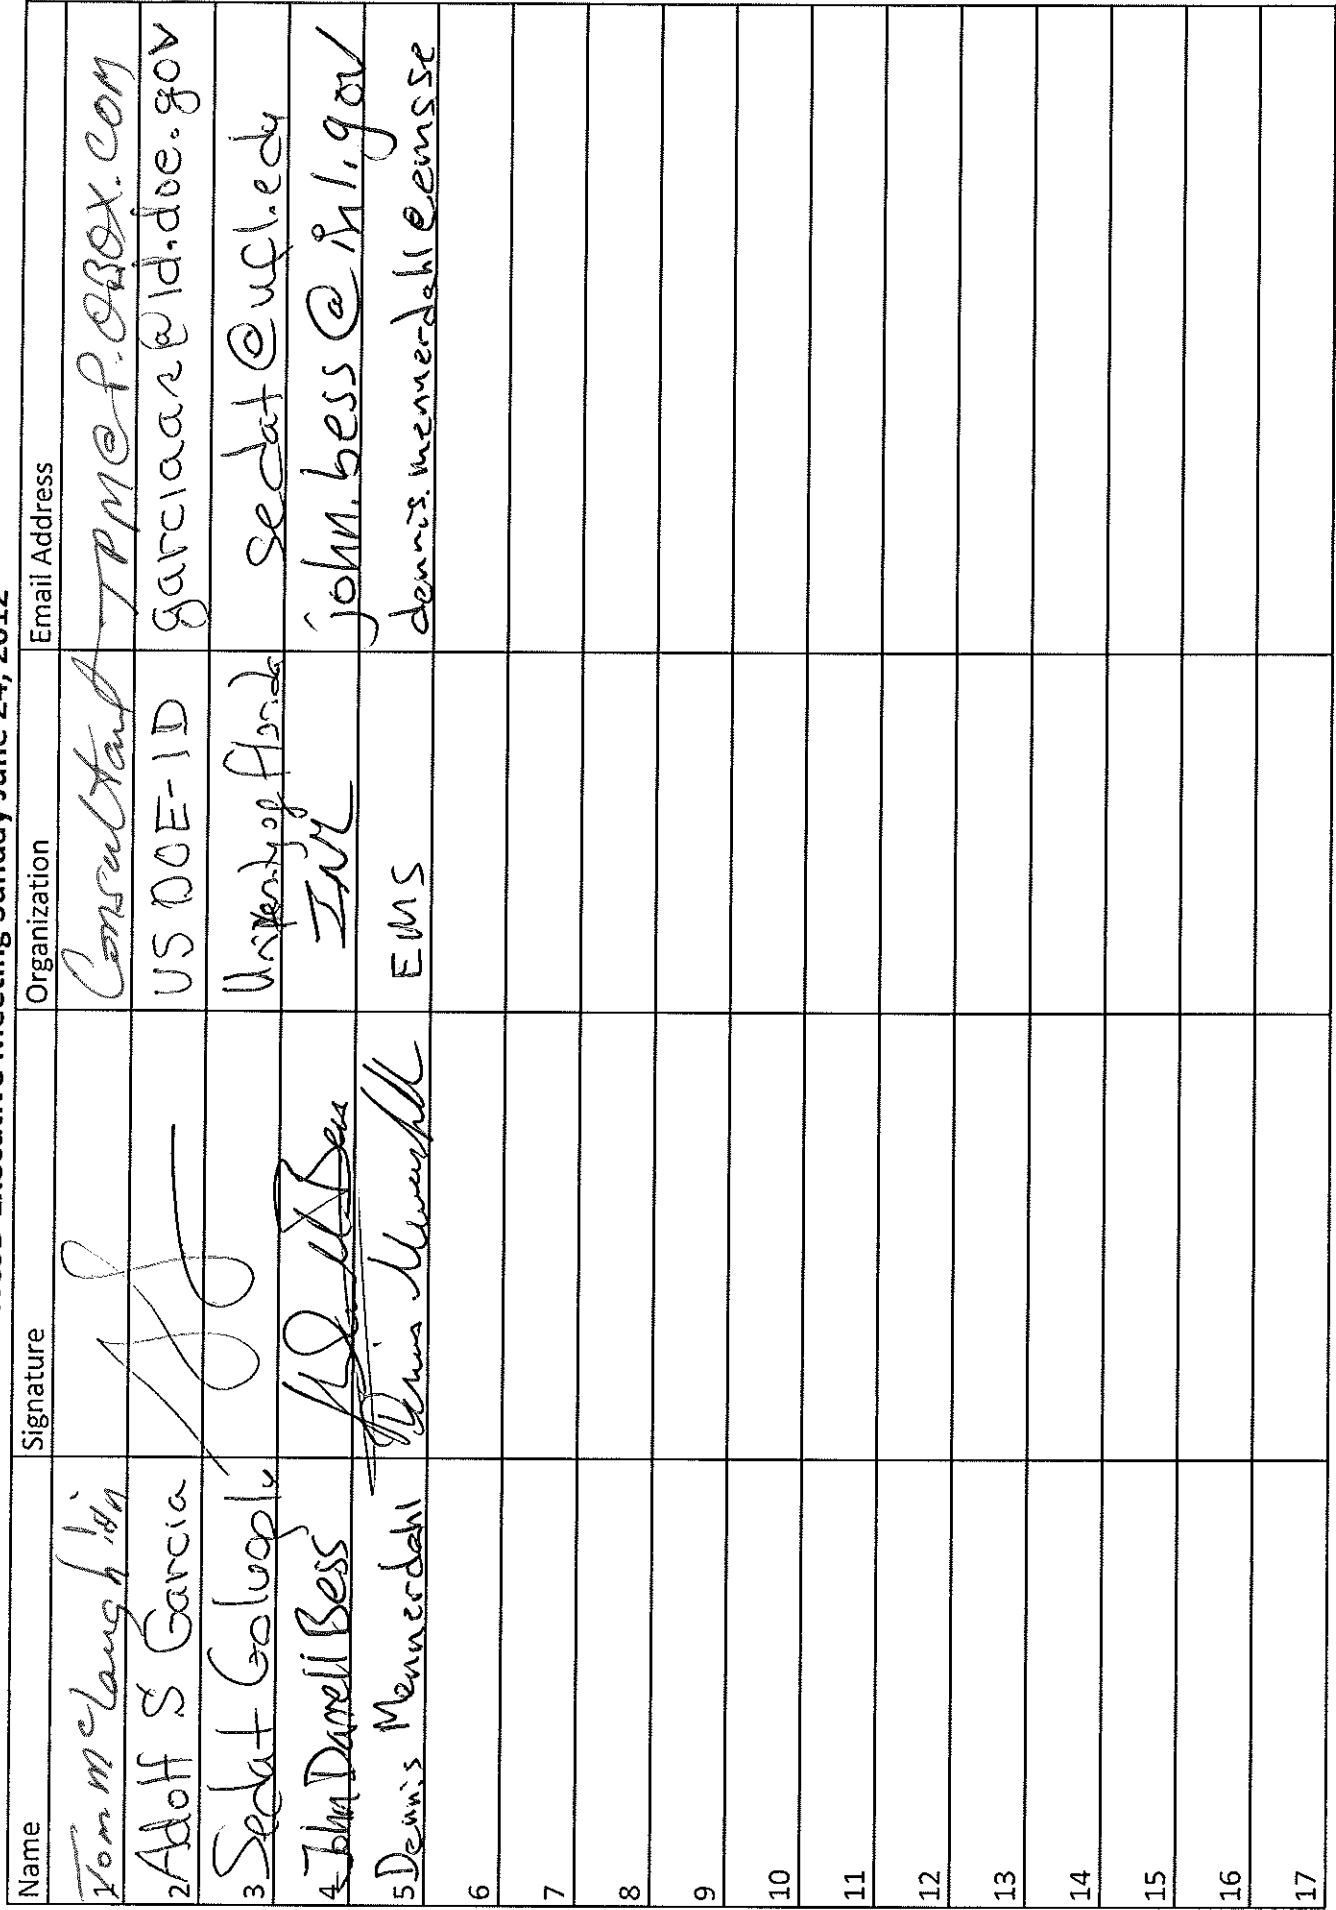 Executive Meeting Sunday June 24, 2012
Name Signature Organization Email Address
1 Tom McLaughlin Consultant TPM@P.OBOX.COM
2 Adolf S Garcia US DOE-ID garciaas@id.doe.gov
3 Sedat Goluoglu University of Florida sedat@ufl.edu
4 John Darrell Bess INL john.bess@inl.gov
5 Dennis Mennerdahl Dennis Mennerdahl EMS dennis.mennerdahl@emsse
6
7
8
9
10
11
12
13
14
15
16
17